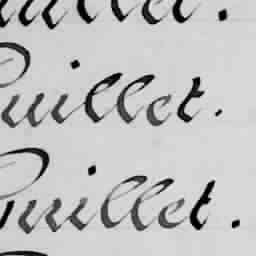 Juillet.
Juillet.
Juillet.